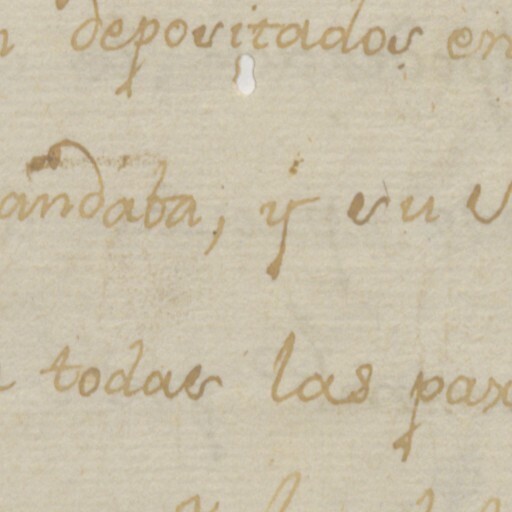 depositados en
andaba, y su
todas las par